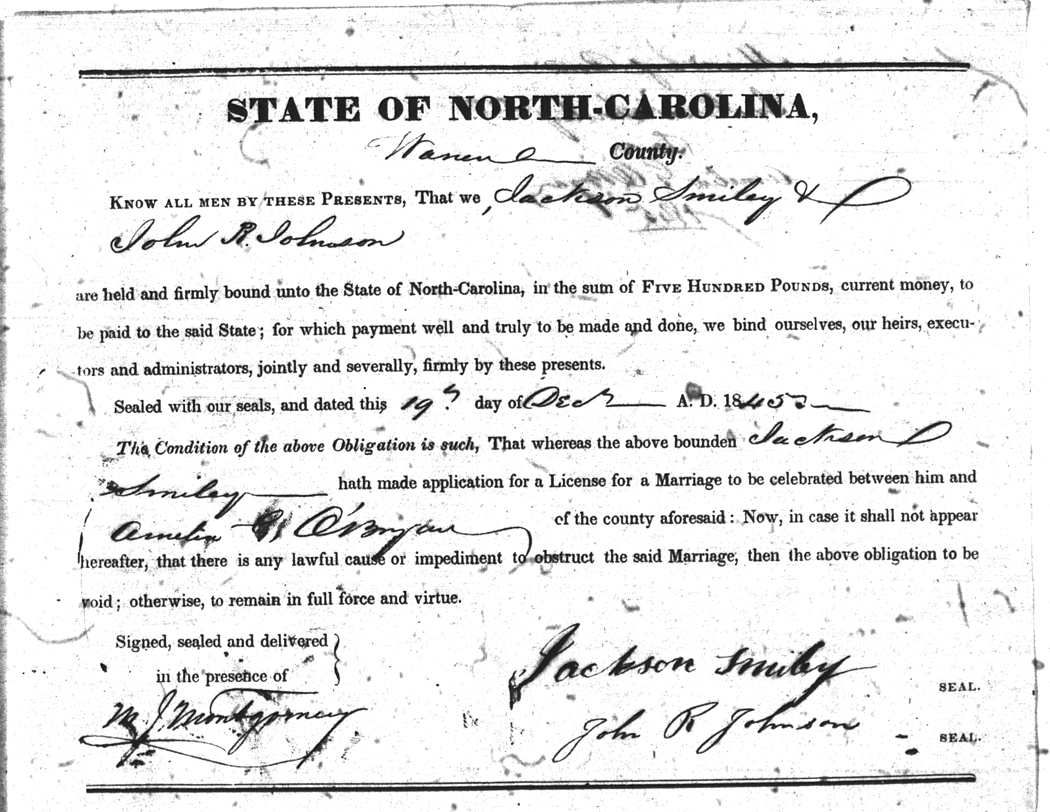 STATE OF NORTH-CAROLINA,
Warren County.
KNOW ALL MEN BY THESE PRESENTS, That we, Jackson Smiley &
John R. Johnson
are held and firmly bound unto the State of North-Carolina, in the sum of FIVE HUNDRED POUNDS, current money, to
be paid to the said State; for which payment well and truly to be made and done, we bind ourselves, our heirs, execu-
tors and administrators, jointly and severally, firmly by these presents.
Sealed with our seals, and dated this 19th day of Decr A. D. 1845
The Condition of the above Obligation is such, That whereas the above bounden Jackson
Smiley hath made application for a License for a Marriage to be celebrated between him and
Amelia G. O'Bryan of the county aforesaid: Now, in case it shall not appear
hereafter, that there is any lawful cause or impediment to obstruct the said Marriage, then the above obligation to be
void; otherwise, to remain in full force and virtue.
Signed, sealed and delivered
in the presence of
Jackson Smiley SEAL.
M. J. Montgomery
John R Johnson SEAL.